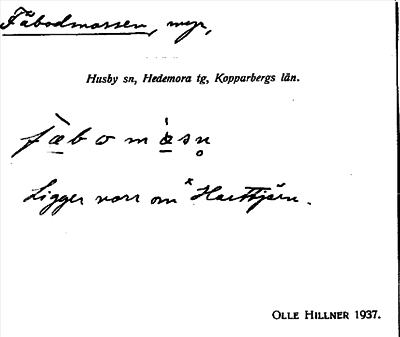 Fäbodmossen, myr,
Husby sn, Hedemora tg, Kopparbergs län.
fæbomåsn
Ligger norr om Hartjärn.
OLLE HILLNER 1937.